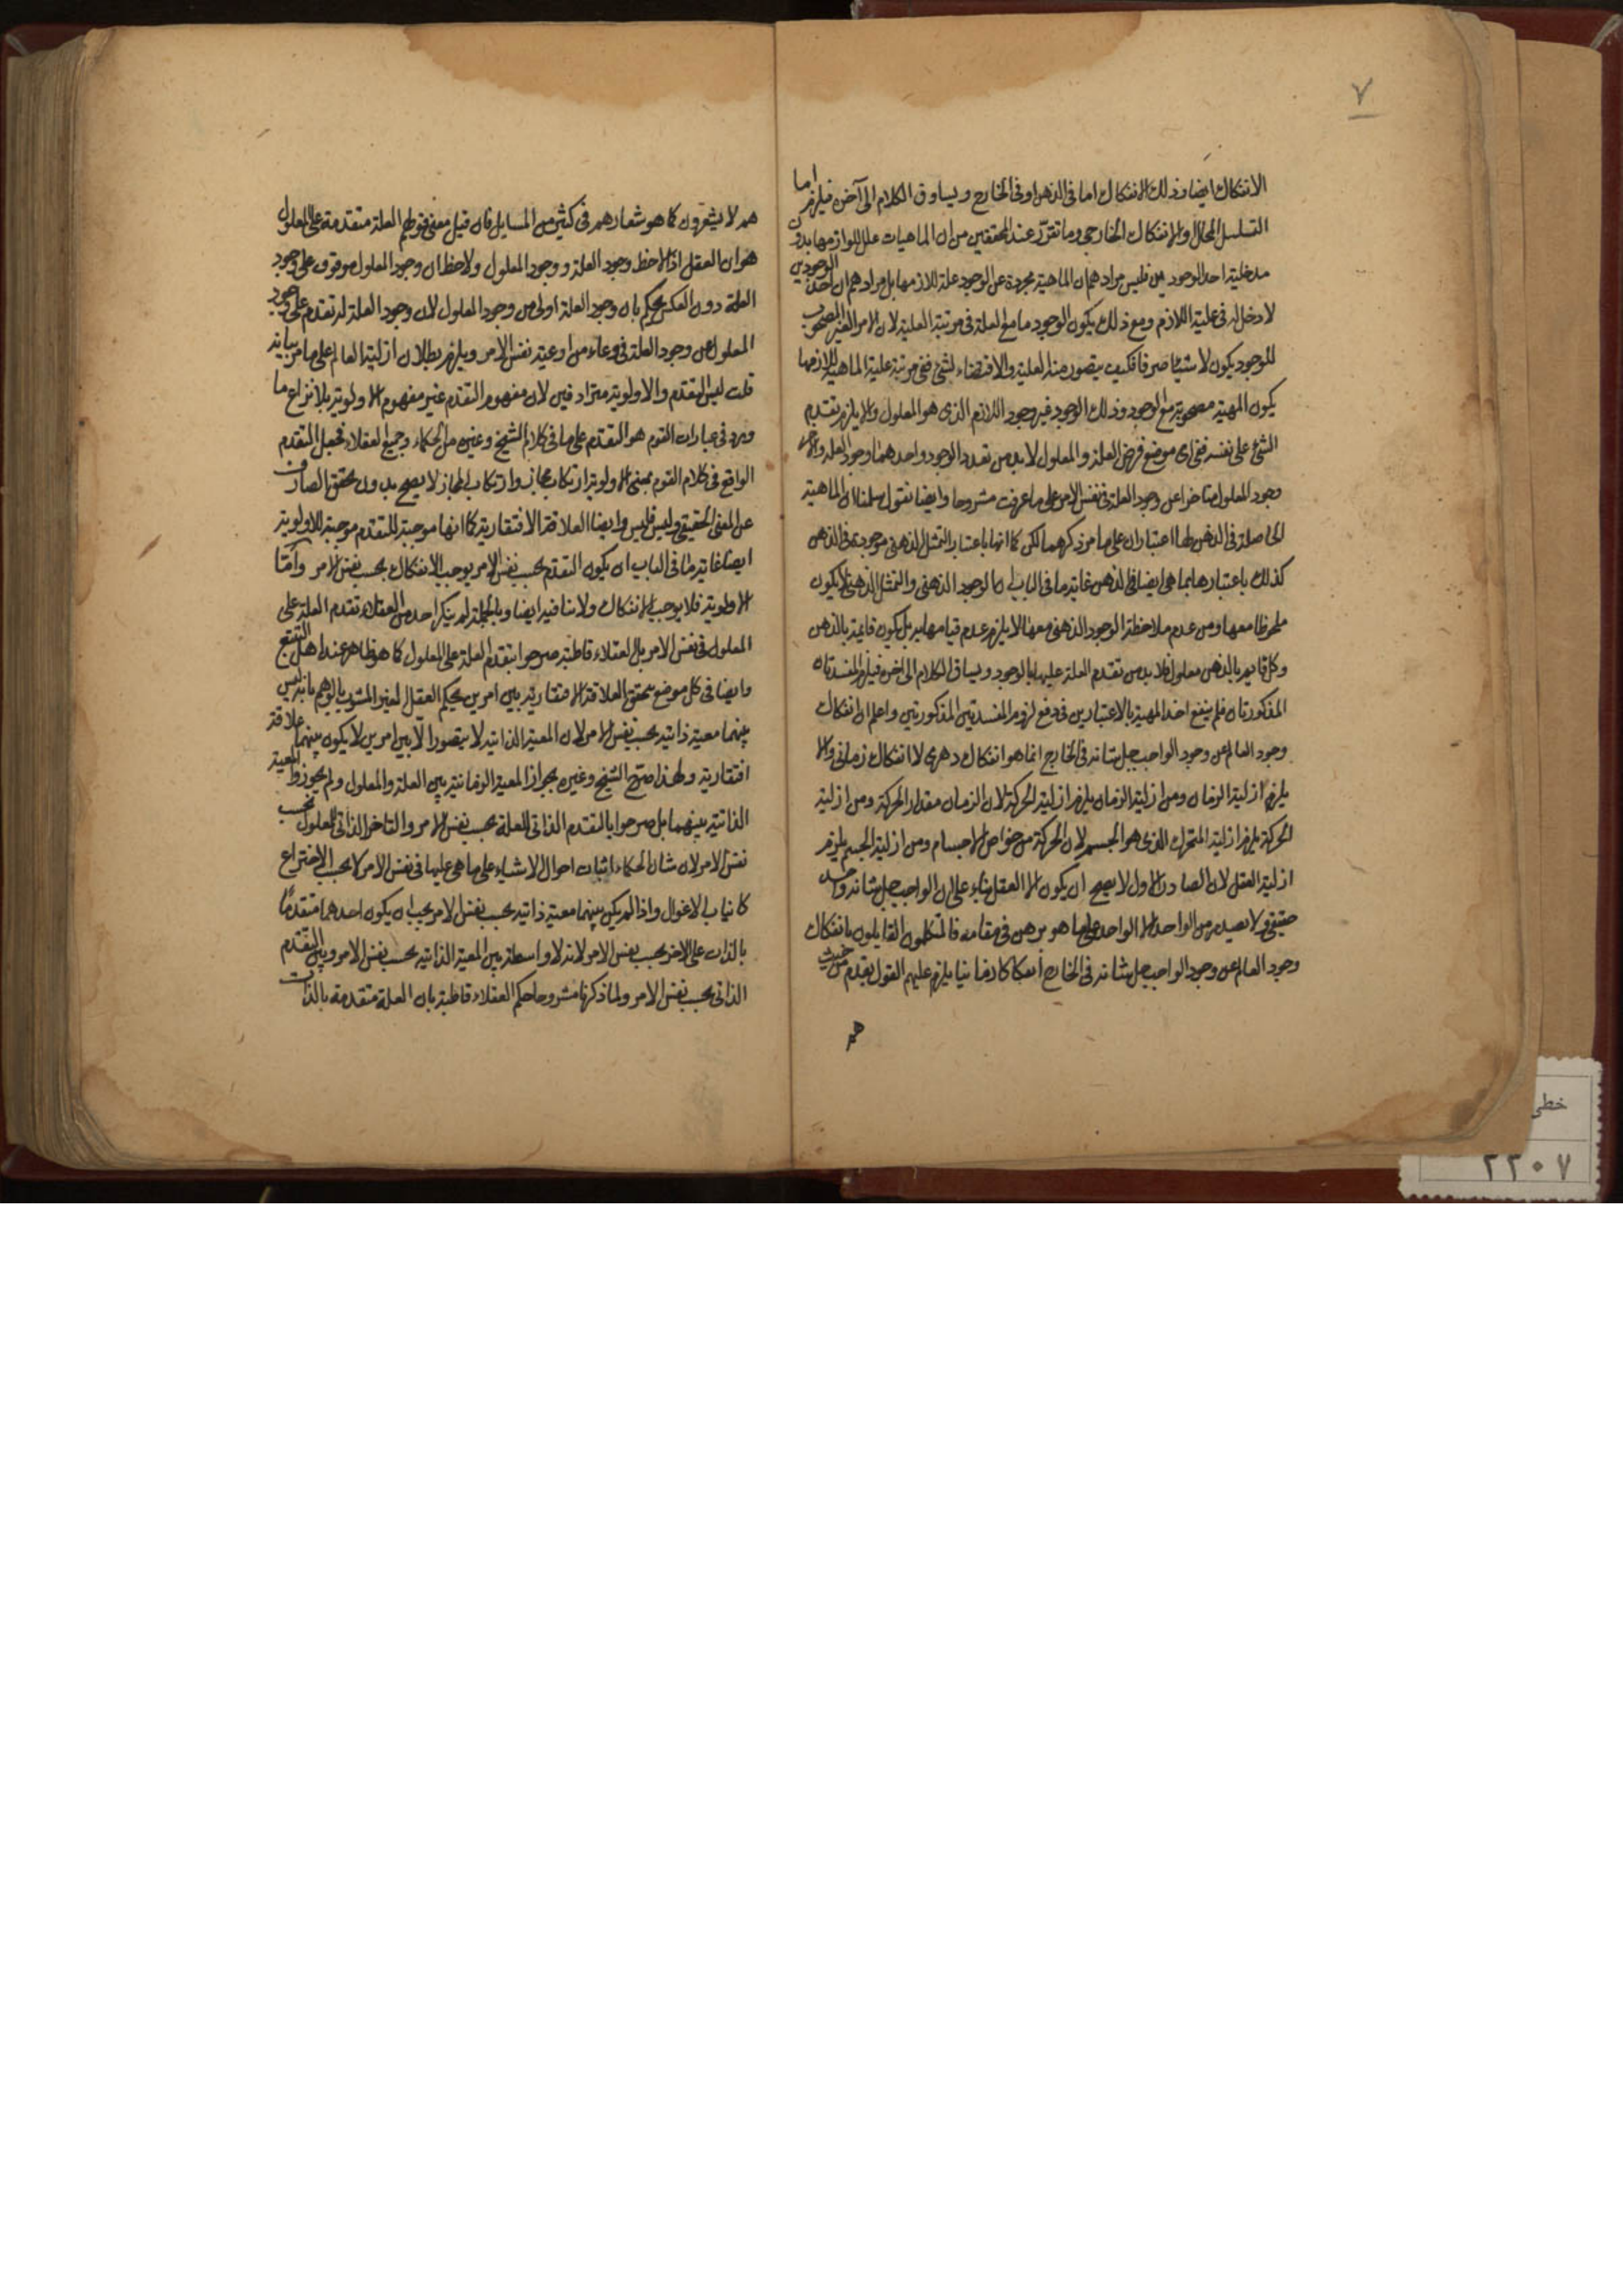 ٧
الانفكاك ايضا وذلك الانفكاك اما فى الذهن او فى الخارج ويساوق الكلام الى آخره فيلزم اما
التسلسل المحال والانفكاك الخارجى وما تقرر عند المحققين من ان الماهيات علل للوازمها بدون
مدخلية احد الوجودين فليس مرادهم ان الماهية مجردة عن الوجود علة للازمها بل مرادهم ان احد الوجودين
لا دخل له فى علية اللازم ومع ذلك يكون الوجود مامع العلة فى مرتبة العلية لان الامر الغير المصحوب
للوجود يكون لا شيئا صرفا فكيف يتصور منه العلية والاقتضاء لشئ ففى مرتبة علية الماهية للازمها
يكون المهية مصحوبة مع الوجود وذلك الوجود غير وجود اللازم الذى هو المعلول والا يلزم تقدم
الشئ على نفسه ففى اى موضع فرض العلة والمعلول لابد من تعدد الوجود واحدهما وجود العلة والاخر
وجود المعلول متاخرا عن وجود العلة فى نفس الامر على ما عرفت مشروحا وايضا نقول سلمنا ان الماهية
الحاصلة فى الذهن لها اعتباران على ما مر ذكرهما لكن كما انها باعتبار التمثل الذهنى موجودة فى الذهن
كذلك باعتبارها بما هى ايضا فى الذهن غاية ما فى الباب ان الوجود الذهنى والتمثل الذهنى لا يكون
ملحوظا معها ومن عدم ملاحظة الوجود الذهنى معها لا يلزم عدم قيامها به بل يكون قايمة بالذهن
وكل قايم بالذهن معلول فلا بد من تقدم العلة عليها بالوجود ويساق الكلام الى اخره فيلزم المفسدتان
المذكورتان فلم ينفع اخذ المهية بالاعتبارين فى دفع لزوم المفسدتين المذكورتين واعلم ان انفكاك
وجود العالم عن وجود الواجب جل شانه فى الخارج انما هو انفكاك دهرى لا انفكاك زمانى والا
يلزم ازلية الزمان ومن ازلية الزمان يلزم ازلية الحركة لان الزمان مقدار الحركة ومن ازلية
الحركة يلزم ازلية المتحرك الذى هو الجسم لان الحركة من خواص الاجسام ومن ازلية الجسم يلزم
ازلية العقل لان الصادر الاول لا يصح ان يكون الا العقل بناء على ان الواجب جل شانه واحد
حقيقى ولا يصدر من الواحد الا الواحد على ما هو برهن فى مقامه فالمتكلمون القايلون بانفكاك
وجود العالم عن وجود الواجب جل شانه فى الخارج انفكاكا زمانيا يلزم عليهم القول بقدم من حيث
هم
هم لا يشعرون كما هو شعارهم فى كثير من المسايل فان قيل معنى قولهم العلة متقدمة على المعلول
هو ان العقل اذا لاحظ وجود العلة ووجود المعلول ولاحظ ان وجود المعلول موقوف على وجود
العلة دون العكس يحكم بان وجود العلة اولى من وجود المعلول لان وجود العلة له تقدم على وجود
المعلول عن وجود العلة فى وعاء من اوعية نفس الامر ويلزم بطلان ازلية العالم على ما مر بيانه
قلت ليس التقدم والاولوية مترادفين لان مفهوم التقدم غير مفهوم الاولوية بلا نزاع ما
ورد فى عبارات القوم هو التقدم على ما فى كلام الشيخ وغيره من الحكماء وجميع العقلاء فحمل التقدم
الواقع فى كلام القوم بمعنى الاولوية ارتكاب مجاز وارتكاب المجاز لا يصح بدون تحقق الصارف
عن المعنى الحقيقى وليس فليس وايضا العلاقة الافتقارية كما انها موجبة للتقدم موجبة للاولوية
ايضا غاية ما فى الباب ان يكون التقدم بحسب نفس الامر يوجب الانفكاك بحسب نفس الامر وامّا
الاولوية فلا يوجب الانفكاك ولا تنافيه ايضا وبالجملة لم ينكر احد من العقلاء تقدم العلة على
المعلول فى نفس الامر بل العقلاء قاطبة صرحوا بتقدم العلة على المعلول كما هو ظاهر عند اهل التتبع
وايضا فى كل موضع تحقق العلاقة الافتقارية بين امرين يحكم العقل الغير المشوب بالوهم بانه ليس
بينهما معية ذاتية بحسب نفس الامر لان المعية الذاتية لا يتصور الّا بين امرين لا يكون بينهما علاقة
افتقارية ولهذا صرّح الشيخ وغيره بجواز المعية الزمانية بين العلة والمعلول ولم يجوزوا المعية
الذاتية بينهما بل صرحوا بالتقدم الذاتى للعلة بحسب نفس الامر والتاخر الذاتى للمعلول بحسب
نفس الامر لان شان الحكماء اثبات احوال الاشياء على ما هى عليها فى نفس الامر لا بحسب الاختراع
كانياب الاغوال واذا لم يكن بينهما معية ذاتية بحسب نفس الامر يجب ان يكون احدهما متقدمًا
بالذات على الاخر بحسب نفس الامر لانه لا واسطة بين المعية الذاتية بحسب نفس الامر وبين التقدم
الذاتى بحسب نفس الامر ولما ذكرنا مشروحا حكم العقلاء قاطبة بان العلة متقدمة بالذات
خطى
٢٢٠٧